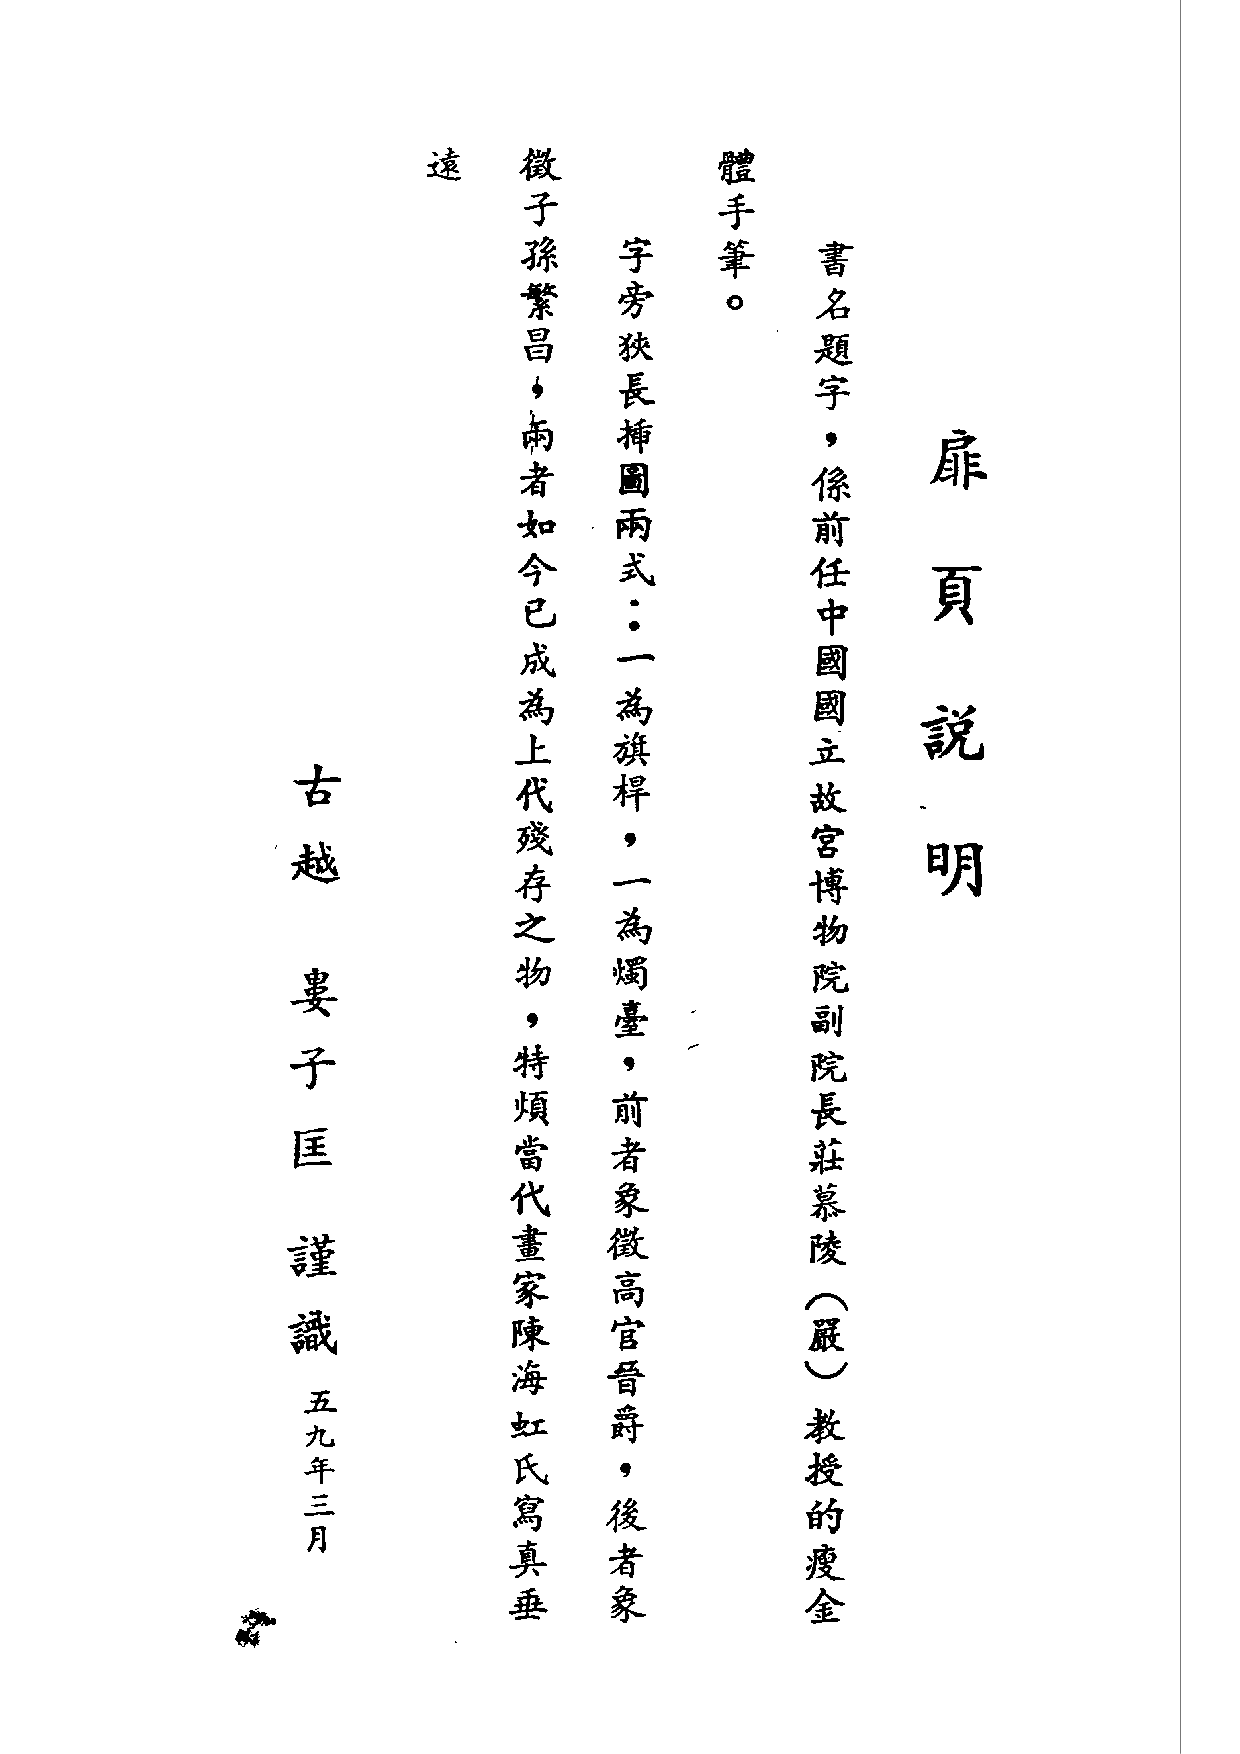 扉頁説明
書名題字，係前任中國國立故宮博物院副院長莊慕陵（嚴）教授的瘦金
體手筆。
字旁狹長揷圖兩式：一為旗桿，一為燭臺，前者象徵高官晉爵，後者象
徵子孫繁昌，兩者如今已成為上代殘存之物，特煩當代畫家陳海虹氏寫真垂
遠
古越　婁子匡　謹識　五九年三月